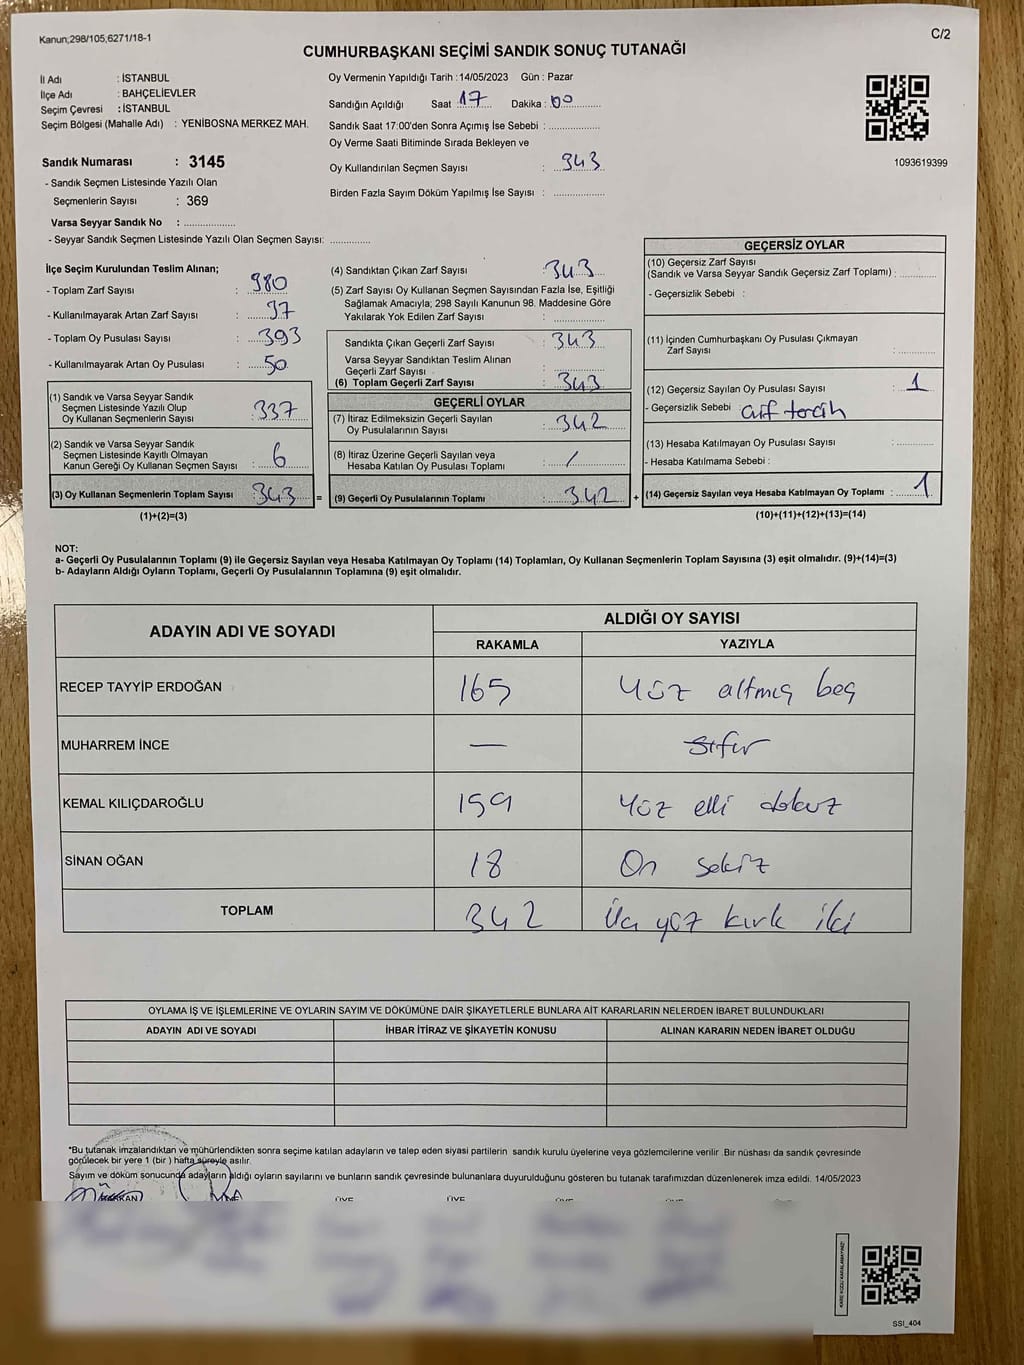 Kanun;298/105,6271/18-1
C/2
CUMHURBAŞKANI SEÇİMİ SANDIK SONUÇ TUTANAĞI
İl Adı : İSTANBUL
İlçe Adı : BAHÇELİEVLER
Seçim Çevresi : İSTANBUL
Seçim Bölgesi (Mahalle Adı) : YENİBOSNA MERKEZ MAH.
Sandık Numarası : 3145
- Sandık Seçmen Listesinde Yazılı Olan
Seçmenlerin Sayısı : 369
Varsa Seyyar Sandık No :
- Seyyar Sandık Seçmen Listesinde Yazılı Olan Seçmen Sayısı:
Oy Vermenin Yapıldığı Tarih :14/05/2023 Gün : Pazar
Sandığın Açıldığı Saat 17 Dakika : 00
Sandık Saat 17:00'den Sonra Açımış İse Sebebi :
Oy Verme Saati Bitiminde Sırada Bekleyen ve
Oy Kullandırılan Seçmen Sayısı : 343
Birden Fazla Sayım Döküm Yapılmış İse Sayısı :
1093619399
İlçe Seçim Kurulundan Teslim Alınan;
- Toplam Zarf Sayısı : 380
- Kullanılmayarak Artan Zarf Sayısı : 37
- Toplam Oy Pusulası Sayısı : 393
- Kullanılmayarak Artan Oy Pusulası : 50
(1) Sandık ve Varsa Seyyar Sandık
Seçmen Listesinde Yazılı Olup
Oy Kullanan Seçmenlerin Sayısı : 337
(2) Sandık ve Varsa Seyyar Sandık
Seçmen Listesinde Kayıtlı Olmayan
Kanun Gereği Oy Kullanan Seçmen Sayısı : 6
(3) Oy Kullanan Seçmenlerin Toplam Sayısı : 343 =
(1)+(2)=(3)
(4) Sandıktan Çıkan Zarf Sayısı : 343
(5) Zarf Sayısı Oy Kullanan Seçmen Sayısından Fazla İse, Eşitliği
Sağlamak Amacıyla; 298 Sayılı Kanunun 98. Maddesine Göre
Yakılarak Yok Edilen Zarf Sayısı :
Sandıkta Çıkan Geçerli Zarf Sayısı : 343
Varsa Seyyar Sandıktan Teslim Alınan
Geçerli Zarf Sayısı :
(6) Toplam Geçerli Zarf Sayısı : 343
GEÇERLİ OYLAR
(7) İtiraz Edilmeksizin Geçerli Sayılan
Oy Pusulalarının Sayısı : 342
(8) İtiraz Üzerine Geçerli Sayılan veya
Hesaba Katılan Oy Pusulası Toplamı : /
(9) Geçerli Oy Pusulalarının Toplamı : 342 +
GEÇERSİZ OYLAR
(10) Geçersiz Zarf Sayısı
(Sandık ve Varsa Seyyar Sandık Geçersiz Zarf Toplamı) :
- Geçersizlik Sebebi :
(11) İçinden Cumhurbaşkanı Oy Pusulası Çıkmayan
Zarf Sayısı :
(12) Geçersiz Sayılan Oy Pusulası Sayısı : 1
- Geçersizlik Sebebi : Çift tercih
(13) Hesaba Katılmayan Oy Pusulası Sayısı :
- Hesaba Katılmama Sebebi :
(14) Geçersiz Sayılan veya Hesaba Katılmayan Oy Toplamı : 1
(10)+(11)+(12)+(13)=(14)
NOT:
a- Geçerli Oy Pusulalarının Toplamı (9) ile Geçersiz Sayılan veya Hesaba Katılmayan Oy Toplamı (14) Toplamları, Oy Kullanan Seçmenlerin Toplam Sayısına (3) eşit olmalıdır. (9)+(14)=(3)
b- Adayların Aldığı Oyların Toplamı, Geçerli Oy Pusulalarının Toplamına (9) eşit olmalıdır.
ADAYIN ADI VE SOYADI
ALDIĞI OY SAYISI
RAKAMLA YAZIYLA
RECEP TAYYİP ERDOĞAN 165 Yüz altmış beş
MUHARREM İNCE — Sıfır
KEMAL KILIÇDAROĞLU 159 Yüz elli dokuz
SİNAN OĞAN 18 On sekiz
TOPLAM 342 Üç yüz kırk iki
OYLAMA İŞ VE İŞLEMLERİNE VE OYLARIN SAYIM VE DÖKÜMÜNE DAİR ŞİKAYETLERLE BUNLARA AİT KARARLARIN NELERDEN İBARET BULUNDUKLARI
ADAYIN ADI VE SOYADI İHBAR İTİRAZ VE ŞİKAYETİN KONUSU ALINAN KARARIN NEDEN İBARET OLDUĞU
*Bu tutanak imzalandıktan ve mühürlendikten sonra seçime katılan adayların ve talep eden siyasi partilerin sandık kurulu üyelerine veya gözlemcilerine verilir .Bir nüshası da sandık çevresinde
görülecek bir yere 1 (bir ) hafta süreyle asılır.
Sayım ve döküm sonucunda adayların aldığı oyların sayılarını ve bunların sandık çevresinde bulunanlara duyurulduğunu gösteren bu tutanak tarafımızdan düzenlenerek imza edildi. 14/05/2023
ÜYE ÜYE
SSI_404